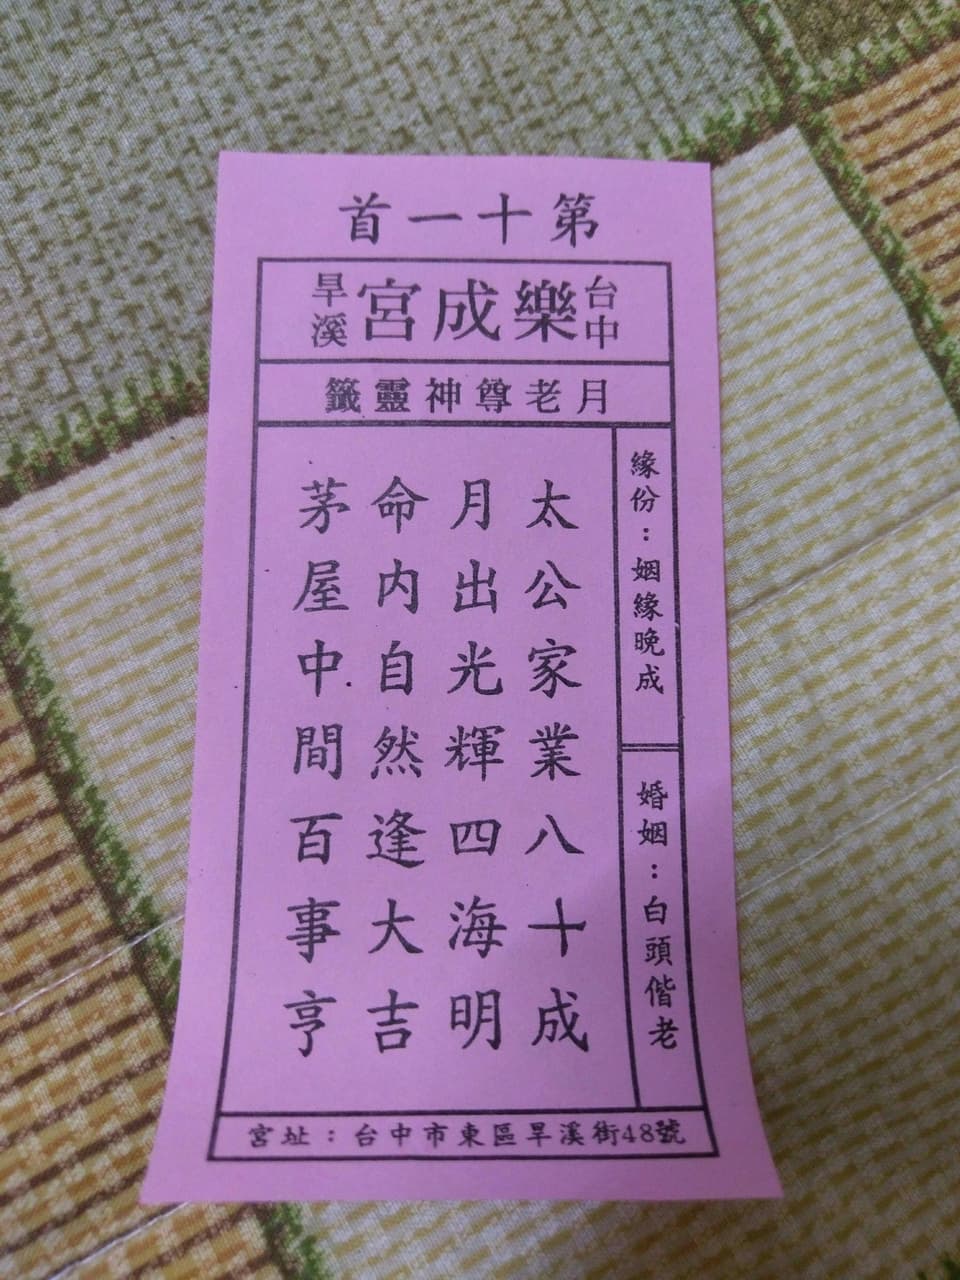 第十一首
台中 樂成宮 旱溪
月老尊神靈籤
緣份：姻緣晚成
婚姻：白頭偕老
太公家業八十成
月出光輝四海明
命內自然逢大吉
茅屋中間百事亨
宮址：台中市東區旱溪街48號